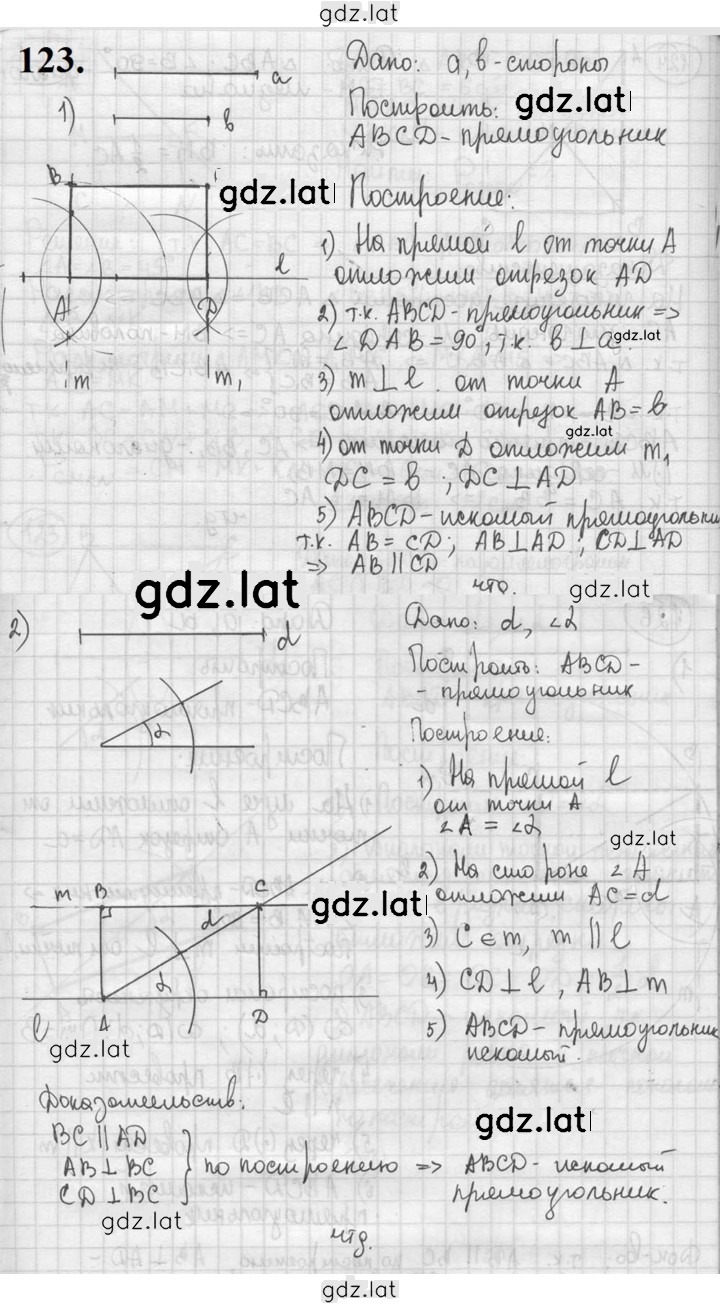 gdz.lat
123.
a
1)
b
Дано: a, b - стороны
gdz.lat
Построить:
ABCD - прямоугольник
B
gdz.lat
Построение:
1) На прямой l от точки A
отложим отрезок AD
l
A
D
m
m₁
2) т.к. ABCD - прямоугольник =>
∠DAB = 90°, т.к. b ⊥ a.
gdz.lat
3) m ⊥ l от точки A
отложим отрезок AB = b
gdz.lat
4) от точки D отложим m₁
DC = b ; DC ⊥ AD
5) ABCD - искомый прямоугольник
т.к. AB = CD; AB ⊥ AD; CD ⊥ AD
=> AB || CD
чтд.
gdz.lat
gdz.lat
2)
d
Дано: d, ∠α
Построить: ABCD -
- прямоугольник
α
Построение:
1) На прямой l
от точки A
∠A = ∠α
gdz.lat
2) На стороне ∠A
отложим AC = d
m
B
C
d
gdz.lat
3) C ∈ m, m || l
4) CD ⊥ l, AB ⊥ m
α
l
A
D
gdz.lat
5) ABCD - прямоугольник
искомый.
Доказательств:
BC || AD
AB ⊥ BC } по построению => ABCD - искомый
CD ⊥ BC
прямоугольник.
gdz.lat
gdz.lat
чтд.
gdz.lat